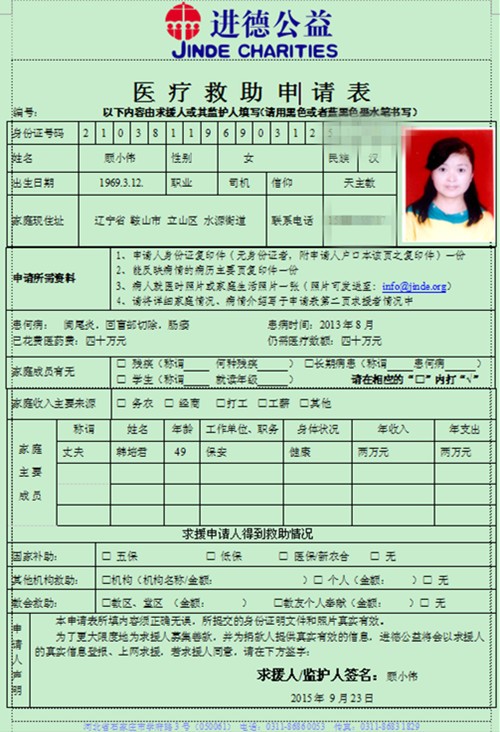 进德公益
JINDE CHARITIES
医疗救助申请表
编号： 以下内容由求援人或其监护人填写(请用黑色或者蓝黑色墨水笔书写)
身份证号码 2 1 0 3 8 1 1 9 6 9 0 3 1 2
姓名 顾小伟 性别 女 民族 汉
出生日期 1969.3.12. 职业 司机 信仰 天主教
家庭现住址 辽宁省 鞍山市 立山区 水源街道 联系电话
申请所需资料
1、申请人身份证复印件（无身份证者，附申请人户口本该页之复印件）一份
2、能反映病情的病历主要页复印件一份
3、病人就医叶照片或家庭生活照片一张（照片可发送至：info@jinde.org）
4、请将详细家庭情况、病情介绍写于申请表第二页求援者情况中
患何病： 阑尾炎，回盲部切除，肠瘘 患病时间：2013年8月
已花费医药费：四十万元 仍需医疗数额：四十万元
家庭成员有无 □ 残疾（称谓 何种残疾 ） □长期病患（称谓 患何病 ）
□ 学生（称谓 就读年级 ） 请在相应的“□”内打“√”
家庭收入主要来源 □ 务农 □ 经商 □打工 □工薪 □其他
家庭主要成员
称谓 姓名 年龄 工作单位、职务 身体状况 年收入 年支出
丈夫 韩培君 49 保安 健康 两万元 两万元
求援申请人得到救助情况
国家补助： □ 五保 □ 低保 □ 医保/新农合 □ 无
其他机构救助： □机构（机构名称/金额： ）□ 个人（金额： ）□ 无
教会救助： □教区、堂区（金额： ） □教友个人奉献（金额： ）□ 无
申请人声明
本申请表所填内容须正确无误，所提交的身份证明文件和照片真实有效。
为了更大限度地为求援人募集善款，并为捐款人提供真实有效的信息，进德公益将会以求援人
的真实信息登报、上网求援，若求援人同意，请在下方签字：
求援人/监护人签名：顾小伟
2015年 9月23日
河北省石家庄市学府路3号（050061） 电话：0311-86860053 传真：0311-86831829